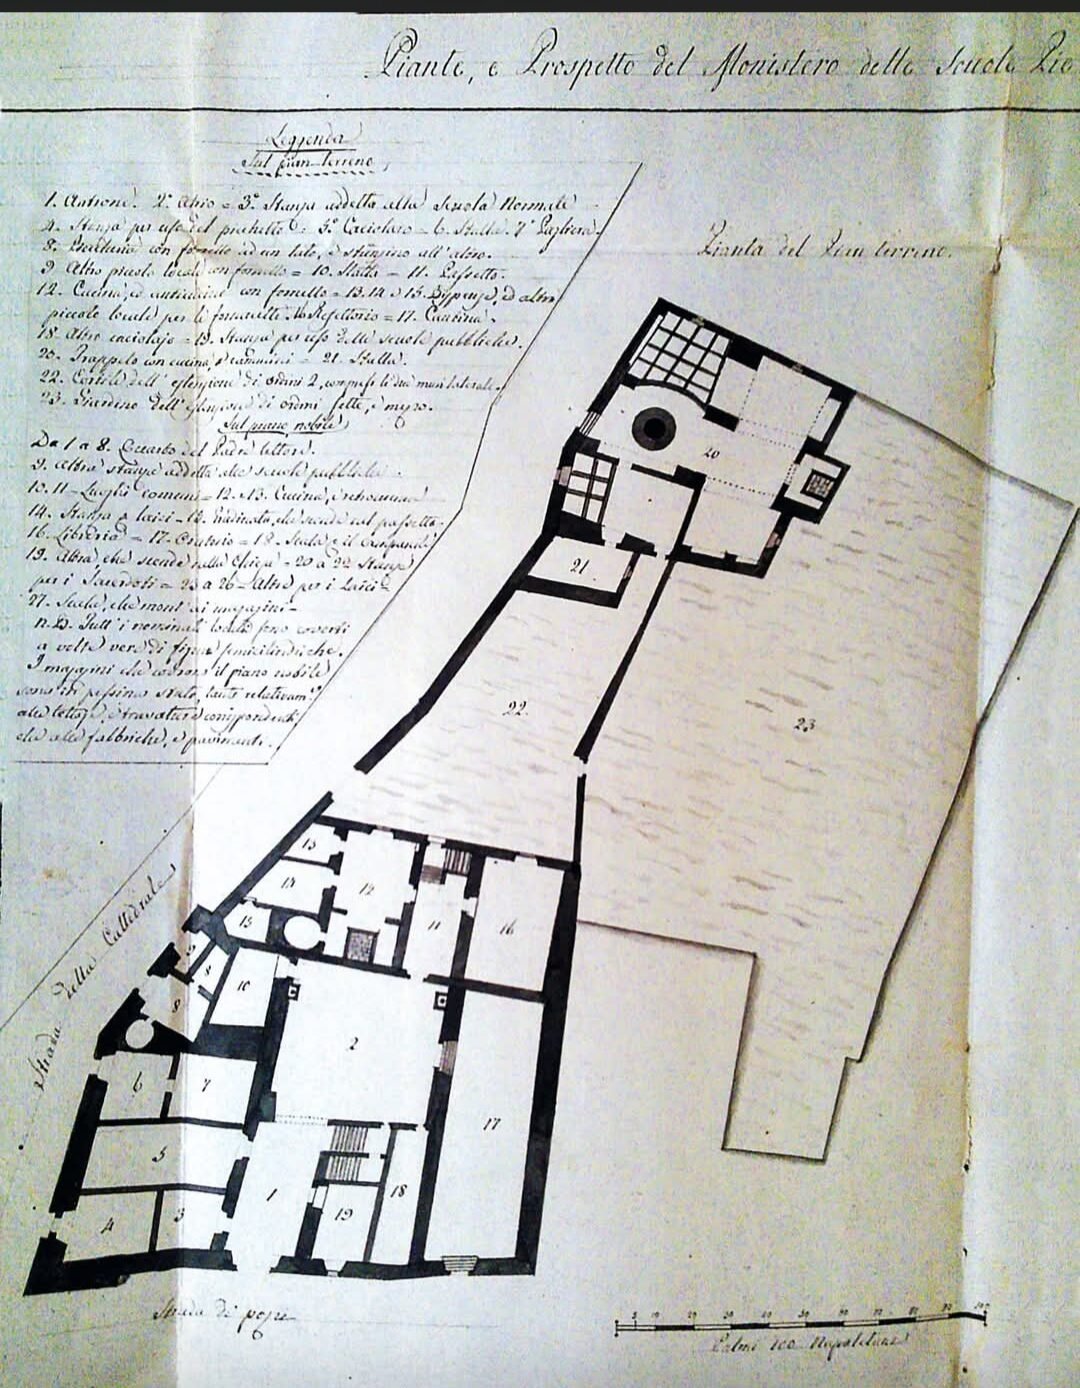 Piante, e Prospetto del Monistero delle Scuole Pie
Leggenda
Sul pian terreno
1. Antrone. 2. Atrio = 3. Stanza addetta alla Scuola Normale
4. Stanza per uso del = 5. Caciolaro = 6. Stalla. 7. Pagliera.
8. con fornello ad un lato, e all'altro.
9. Altro piccolo locale con fornello = 10. Stalla = 11. Passetto.
12. Cucina, ed anticucina con fornello = 13. 14 e 15. Dispense, ed altro
piccolo locale per li Refettorio = 17. Cantina.
18. Altro caciolajo = 19. Stanza per uso delle scuole pubbliche.
20. Trappeto con cucina, e cammini = 21. Stalla.
22. Cortile dell'estensione di ordini 2, compresi li due muri laterali.
23. Giardino dell'estensione di ordini sette, e mezzo.
Sul piano nobile
Da 1 a 8. Quarto del Padre Lettore.
9. Altra stanza addetta alle scuole pubbliche.
10. 11 - Luoghi comuni = 12. e 13. Cucina, e retrocucina
14. Stanza a laici = 15. Gradinata, che scende sul passetto.
16. Libreria = 17. Oratorio = 18. Scala e il campanile
19. Altra, che scende nella Chiesa = 20 a 22 Stanze
per i Sacerdoti = 23 a 26 = Altre per i Laici =
27. Scala, che mont' ai magazini =
N.B. Tutt'i nominati locali sono coverti
a volte vere di figura semicilindriche.
I magazini che covrono il piano nobile
sono in pessimo stato, tanto relativam.e
alle tettoje, e travature corrispondenti
che alle fabbriche, e pavimenti.
Pianta del Pian terreno.
20
21.
22.
23
13
14
12
15
11
16
9
8
10
8
2
6
7
5
17
1
18
19
4
3
Strada della Cattedrale
Strada di
5 10 20 30 40 50 60 70 80 90 100
Palmi 100 Napoletani